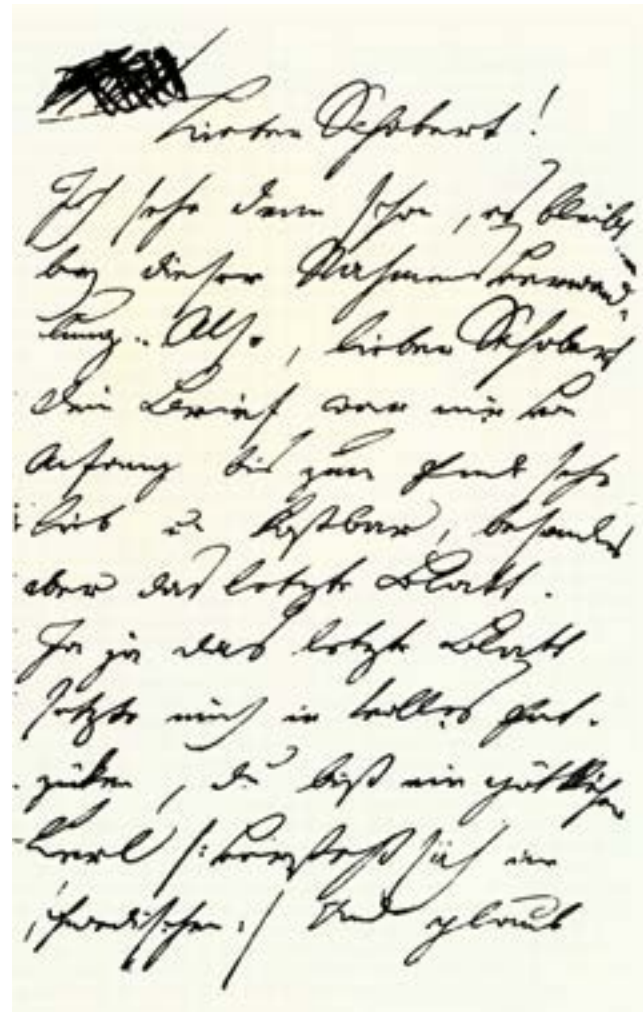 Lieber Schobert!
Ich sehe denn schon, es bleibt
bey dieser Nahmensverwand-
lung. Also, lieber Schobert
Dein Brief war mir von
Anfang bis zum Ende sehr
lieb u. kostbar, besonders
aber das letzte Blatt.
Ja ja das letzte Blatt
setzte mich in volles Ent-
zücken, du bist ein göttlicher
Kerl /: versteht sich im
schwedischen :/ Und glaub